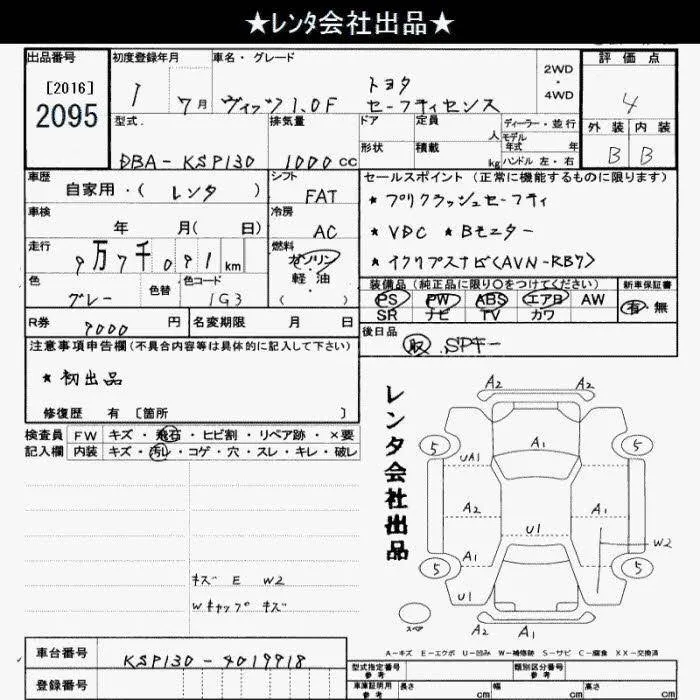 ★レンタ会社出品★
出品番号 初度登録年月 車名・グレード 評価点
[2016]
2095
1 7月 ヴィッツ1.0F トヨタ セーフティセンス 2WD・4WD 4
外装 内装
B B
型式. 排気量 ドア 定員 人 ディーラー・並行
モデル年式 年
DBA-KSP130 1000cc 形状 積載 kg ハンドル 左・右
車歴 シフト セールスポイント(正常に機能するものに限ります)
自家用・(レンタ) FAT ★プリクラッシュセーフティ
車検 冷房
年 月(日) AC ★VDC ★Bモニター
走行 燃料
9万7千091km ガソリン・軽油・( ) ★イクリプスナビ(AVN-RB7)
色 色替 色コード 装備品(純正品に限り○をつけてください) 新車保証書
グレー 1G3 PS PW ABS エアB AW 有・無
SR ナビ TV カワ
R券 円 名変期限 月 日 後日品
取 SPキー
注意事項申告欄(不具合内容等は具体的に記入して下さい)
★初出品
修復歴 有 [箇所 ]
検査員 FW キズ・飛石・ヒビ割・リペア跡・×要
記入欄 内装 キズ・汚レ・コゲ・穴・スレ・キレ・破レ
レンタ会社出品
A2 A2
5 A1 5
UA1
A2 A1
U1 W2
A1
5 5
U1
スペア
A2 A1 A2
キズ E W2
Wキャップキズ
A-キズ E-エクボ U-凹み W-補修跡 S-サビ C-腐食 XX-交換済
車台番号 KSP130-4019918
型式指定番号 参考 類別区分番号 参考
登録番号 車庫証明用 参考 長さ cm 幅 cm 高さ cm